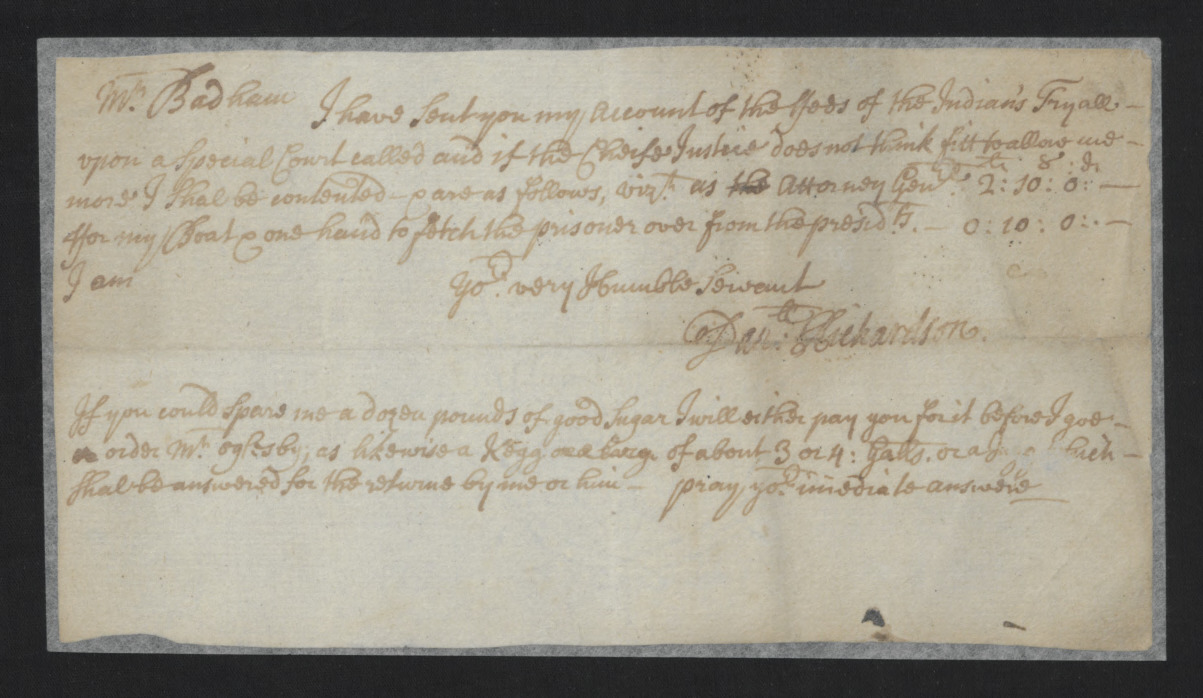 Mr. Badham I have Sent you my Account of the ffees of the Indian's Tryall -
upon a Special Court called and if the Cheife Justice does not think fitt to allow me -
li s d
more I Shal be contented - & are as follows, vizt. as the Attorney Genll. 2: 10: 0: -
ffor my Boat & one hand to fetch the prisoner over from the presidts. - 0: 10: 0: -
I am Yor. very Humble Servant
Danll: Richardson.
If you could Spare me a dozen pounds of good Sugar I will either pay you for it before I goe -
or order Mr. oglesby, as likewise a Kegg of about 3 or 4: Galls. or a which -
Shal be answered for the returne by me or him - pray yor. imediate answere